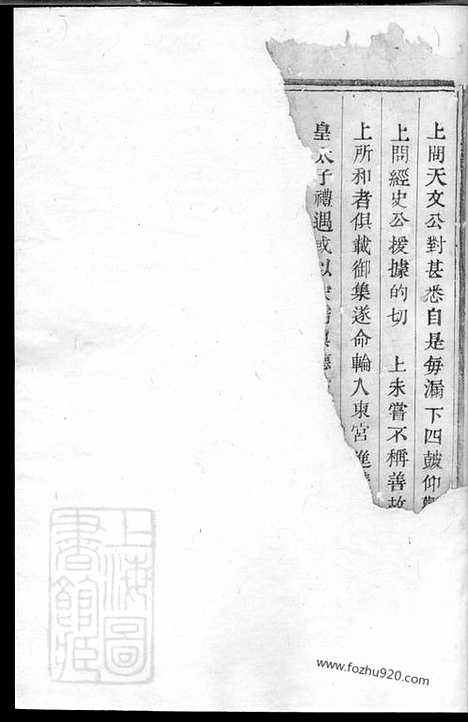 上問天文公對甚悉自是每漏下四皷仰
上問經史公援據的切　上未嘗不稱善故
上所和者俱載御集遂命輪入東宮進
皇太子禮遇或以
上海圖
書館
www.fozhu920.com